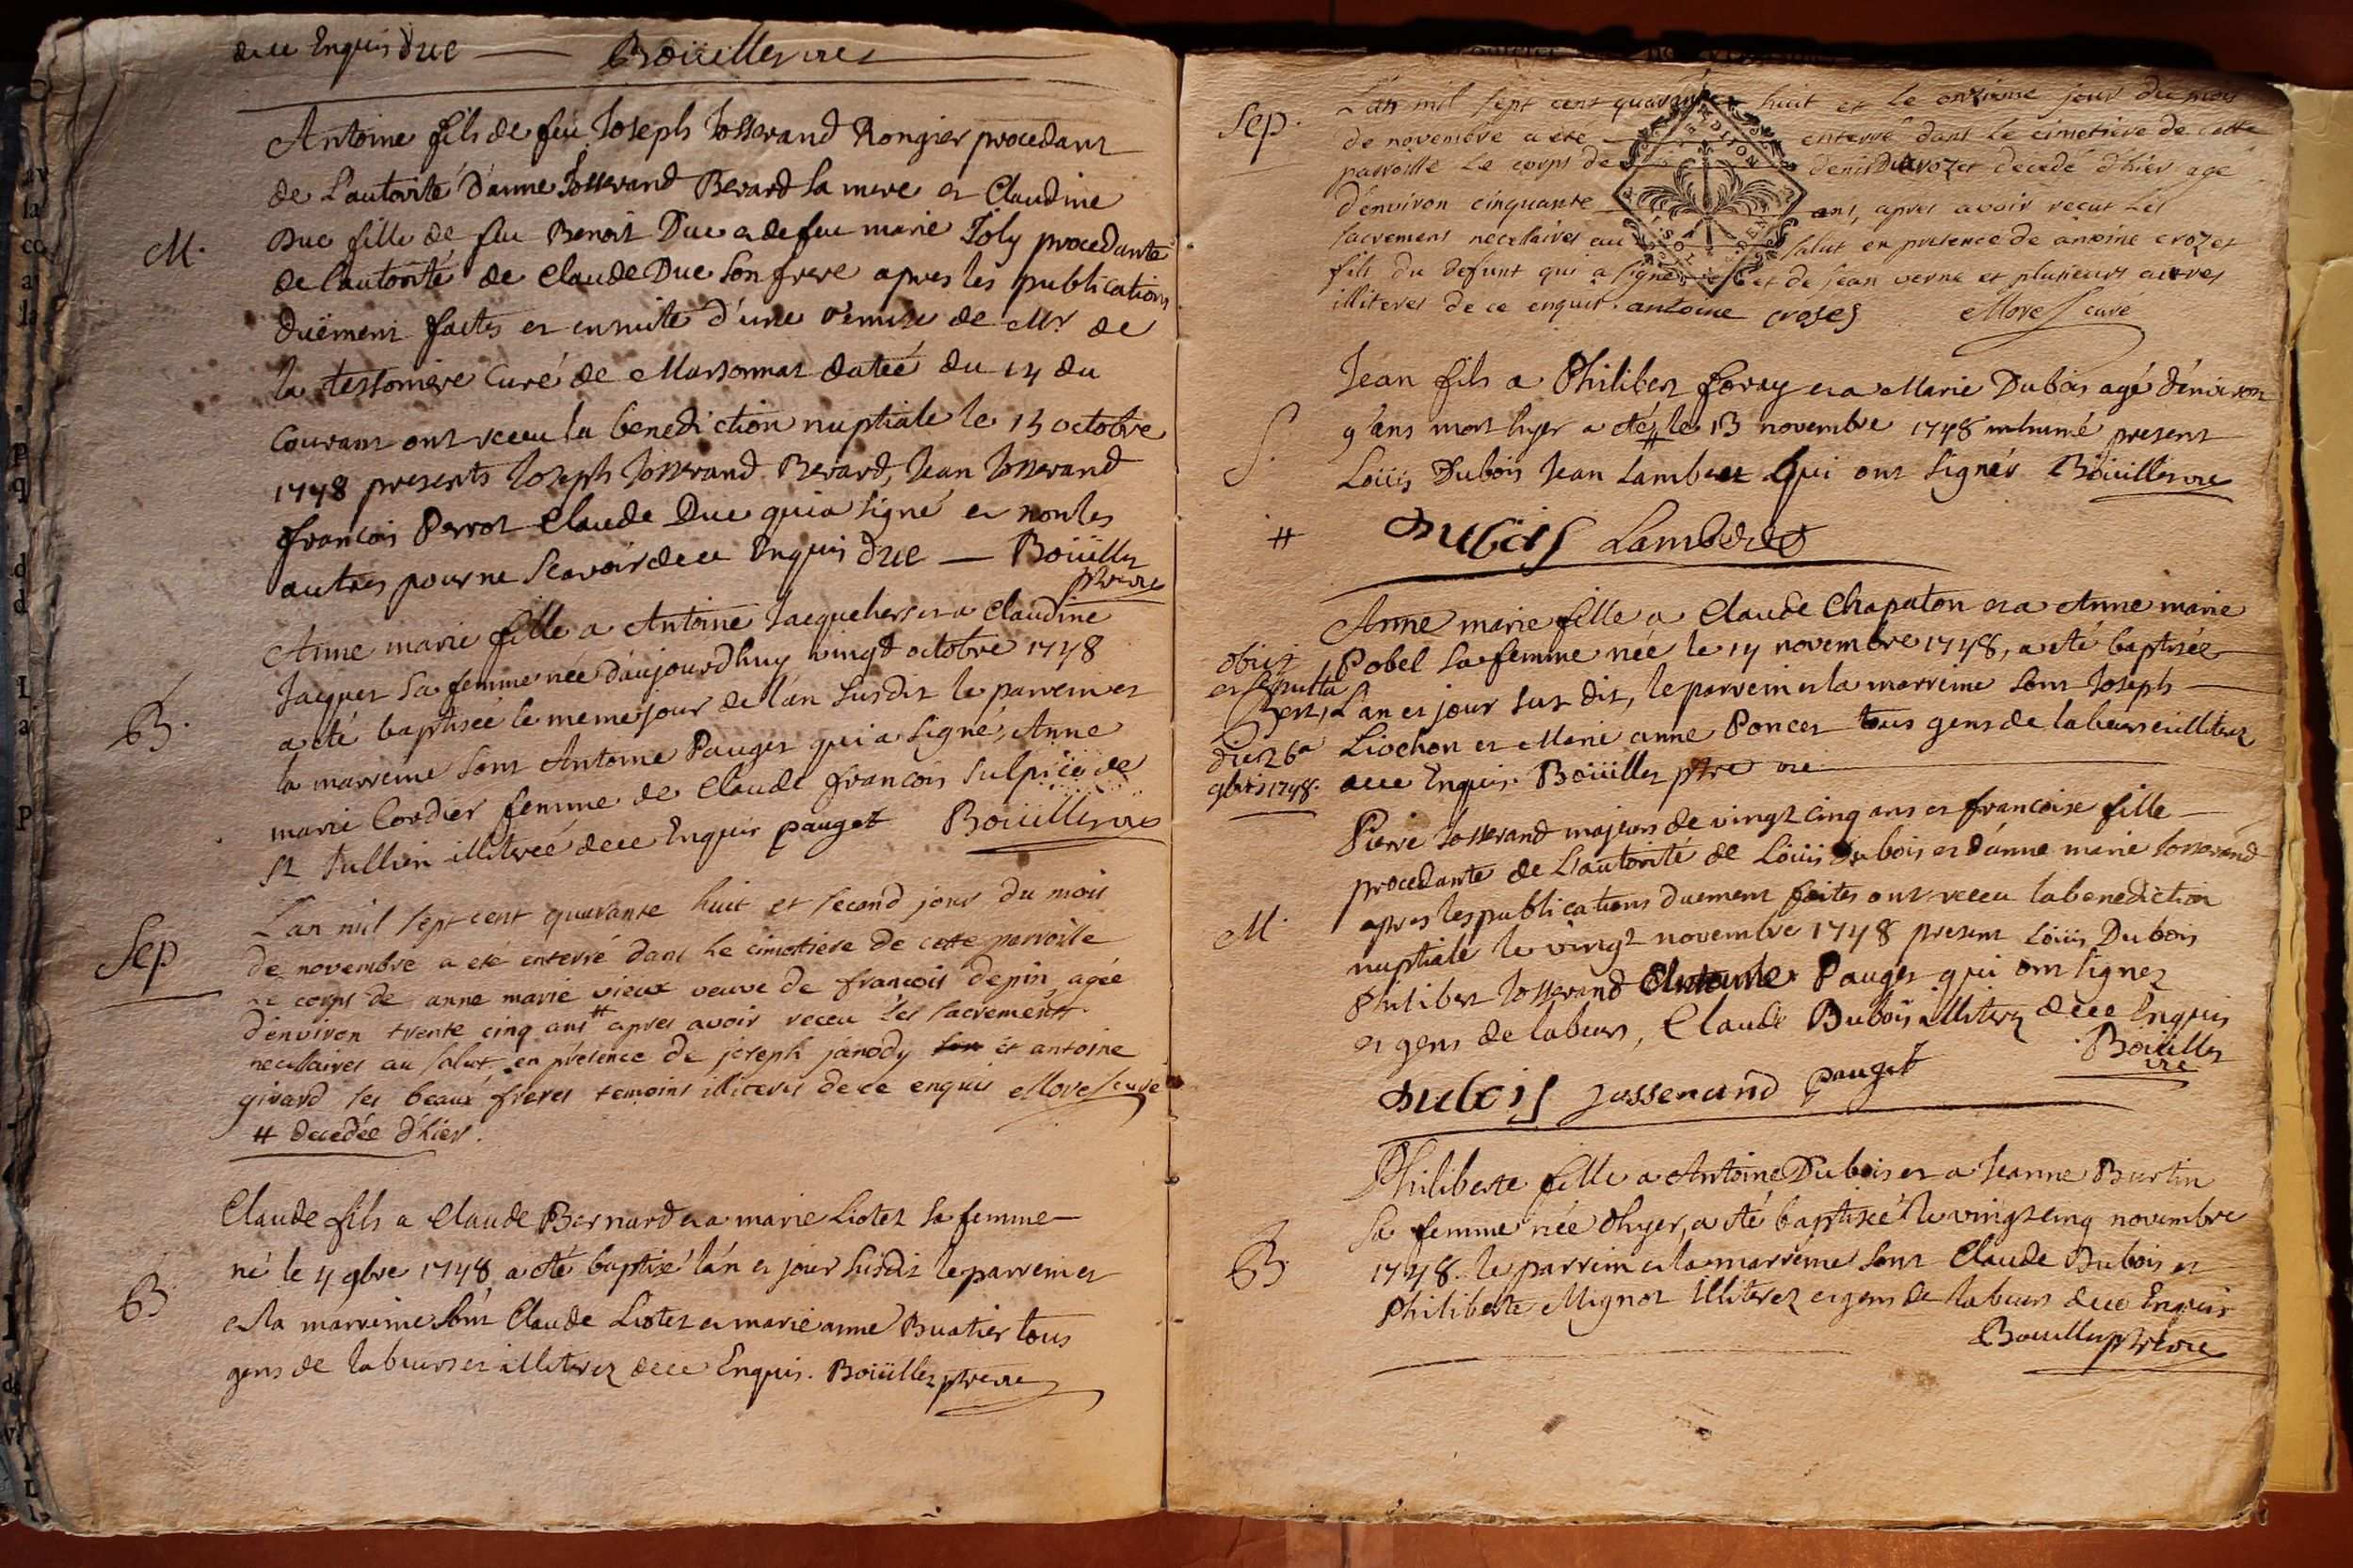 de ce Enquis Duc — Boüiller vic
Antoine fils de feu Joseph Josserand Rongier procedant
de L'autorité d'anne Josserand Berard sa mere et Claudine
Duc fille de feu Benoit Duc et de feu marie Joly procedante
de l'autorité de Claude Duc son frere apres les publications
M. duëment faites et ensuite d'une remise de Mr de
la tessoniere Curé de Marsonnat datée du 14 du
Courant ont receu la benediction nuptiale le 15 octobre
1748 presents Joseph Josserand Berard, Jean Josserand
francois Perrot Claude Duc qui a signé et non les
autres pour ne scavoir de ce Enquis Duc — Boüiller
ptre vic
Anne marie fille a Antoine et a Claudine
Jacquet sa femme née d'aujourdhuy vingt octobre 1748
B. a eté baptisée le meme jour de l'an susdit le parrein et
la marreine sont Antoine Pauget qui a signé, Anne
marie Cordier femme de Claude francois Sulpice de
St Jullien illiterée de ce Enquis pauget Boüiller vic
Sep L'an mil sept cent quarante huit et second jour du mois
de novembre a eté enterré dans le cimetiere de cette parroisse
le corps de anne marie vieux veuve de francois depin agée
d'environ trente cinq ans # apres avoir receu les sacrements
necessaires au salut en présence de joseph janody et antoine
girard ses beaux freres temoins illiteres de ce enquis More curé
# decedée d'hier.
Claude fils a Claude Bernard et a marie Liotet sa femme
né le 4 9bre 1748 a eté baptisé l'an et jour susdit le parrein et
B. et la marreine sont Claude Liotet et marie anne Buatier tous
gens de labeurs et illiterez de ce Enquis. Boüiller ptre vic
Sep. L'an mil sept cent quarante huit et le onzieme jour du mois
de novembre a eté enterré dans le cimetiere de cette
parroisse le corps de denis Ducrozet decedé d'hier agé
d'environ cinquante ans, apres avoir recut les
sacremens necessaires au salut en presence de antoine crozet
fils du defunt qui a signé et de jean verne et plusieurs autres
illiteres de ce enquis. antoine croses More curé
Jean fils a Philibert foray et a Marie Dubois agé d'environ
9 ans mort hyer a eté # le 13 novembre 1748 inhumé present
S. Loüis Dubois Jean Lambert qui ont signés Boüiller vic
# Dubois Lambert
Anne marie fille a Claude Chapaton et a Anne marie
Pobel sa femme née le 14 novembre 1748, a eté baptisée
L'an et jour sus dit, le parrein et la marreine sont Joseph
Liochon et Marie anne Poncet tous gens de labeurs et illiterez
de ce Enquis. Boüiller ptre vic
obiit
et sepulta
est,
die 26a
9bris 1748.
Pierre Josserand majeur de vingt cinq ans et francoise fille
procedante de L'autorité de Loüis Dubois et d'anne marie Josserand
apres les publications duement faites ont receu la benediction
M. nuptiale le vingt novembre 1748 present Loüis Dubois
Philibert Josserand Antoine Pauget qui ont signez
et gens de labeurs, Claude Dubois illiterez de ce Enquis
Boüiller
vic
Dubois Josserand pauget
Philiberte fille a Antoine Dubois et a Jeanne Burtin
sa femme née d'hyer, a eté baptisée le vingt cinq novembre
B. 1748. le parrein et la marreine sont Claude Dubois et
Philiberte Mignot illiterez et gens de labeurs de ce Enquis
Boüiller ptre vic